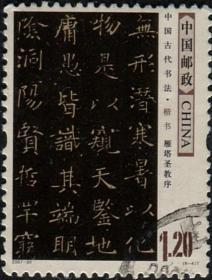 中国邮政
CHINA
中国古代书法·楷书 雁塔圣教序
無形潛寒暑以化
物是以窺天鑒地
庸愚皆識其端明
陰洞陽賢哲罕窮
1.20
2007-30